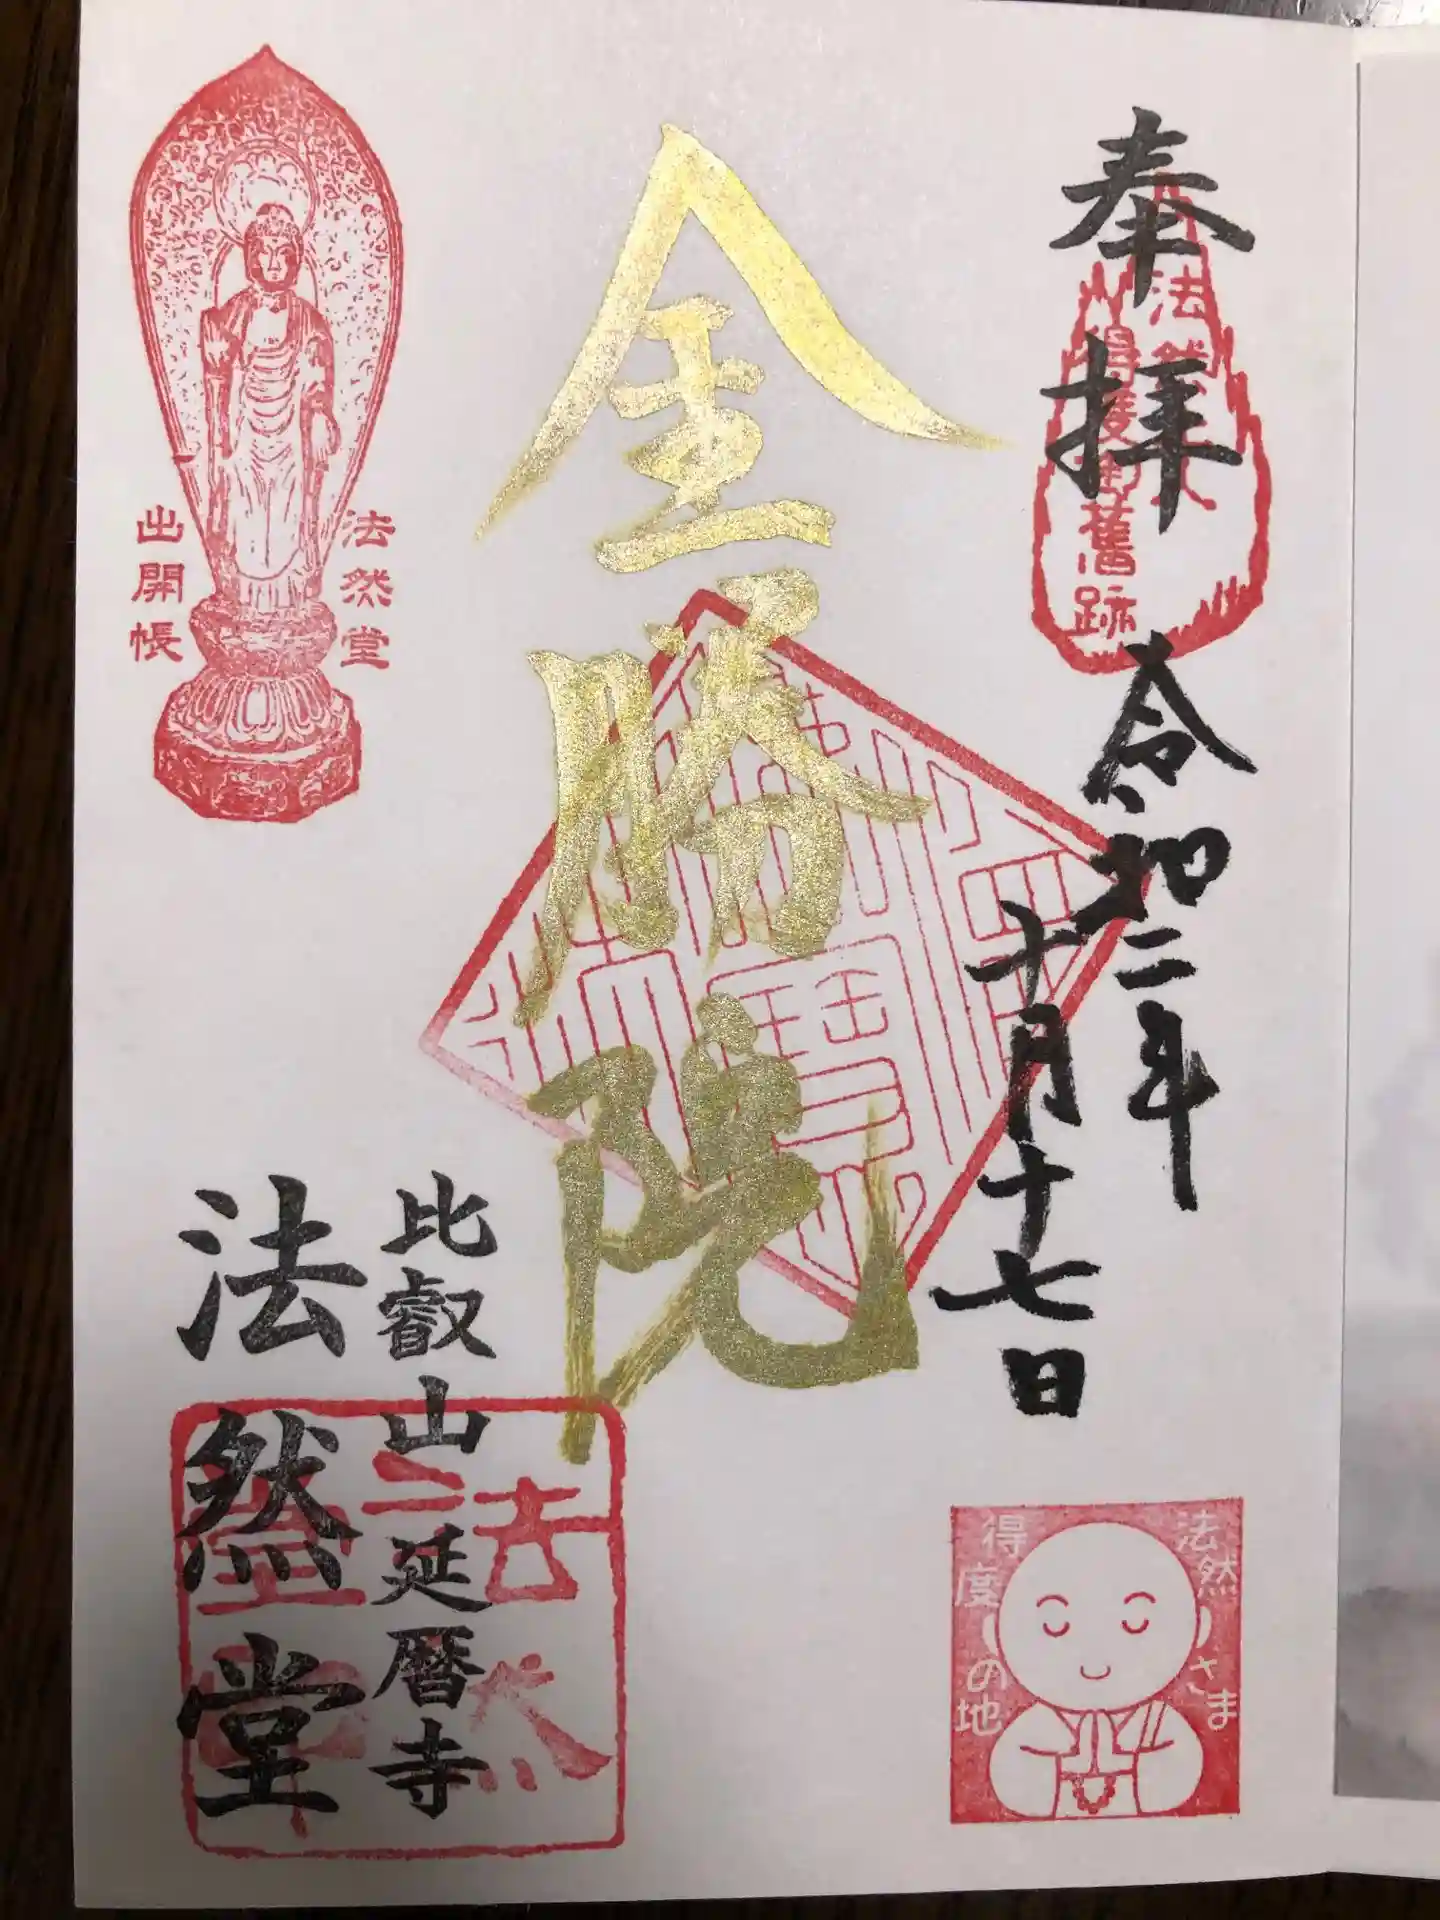 奉拝
法然上人
得度御舊跡
令和二年
十月十七日
金勝院
法然堂
出開帳
比叡山延暦寺
法然堂
法然
堂
法然さま
得度の地